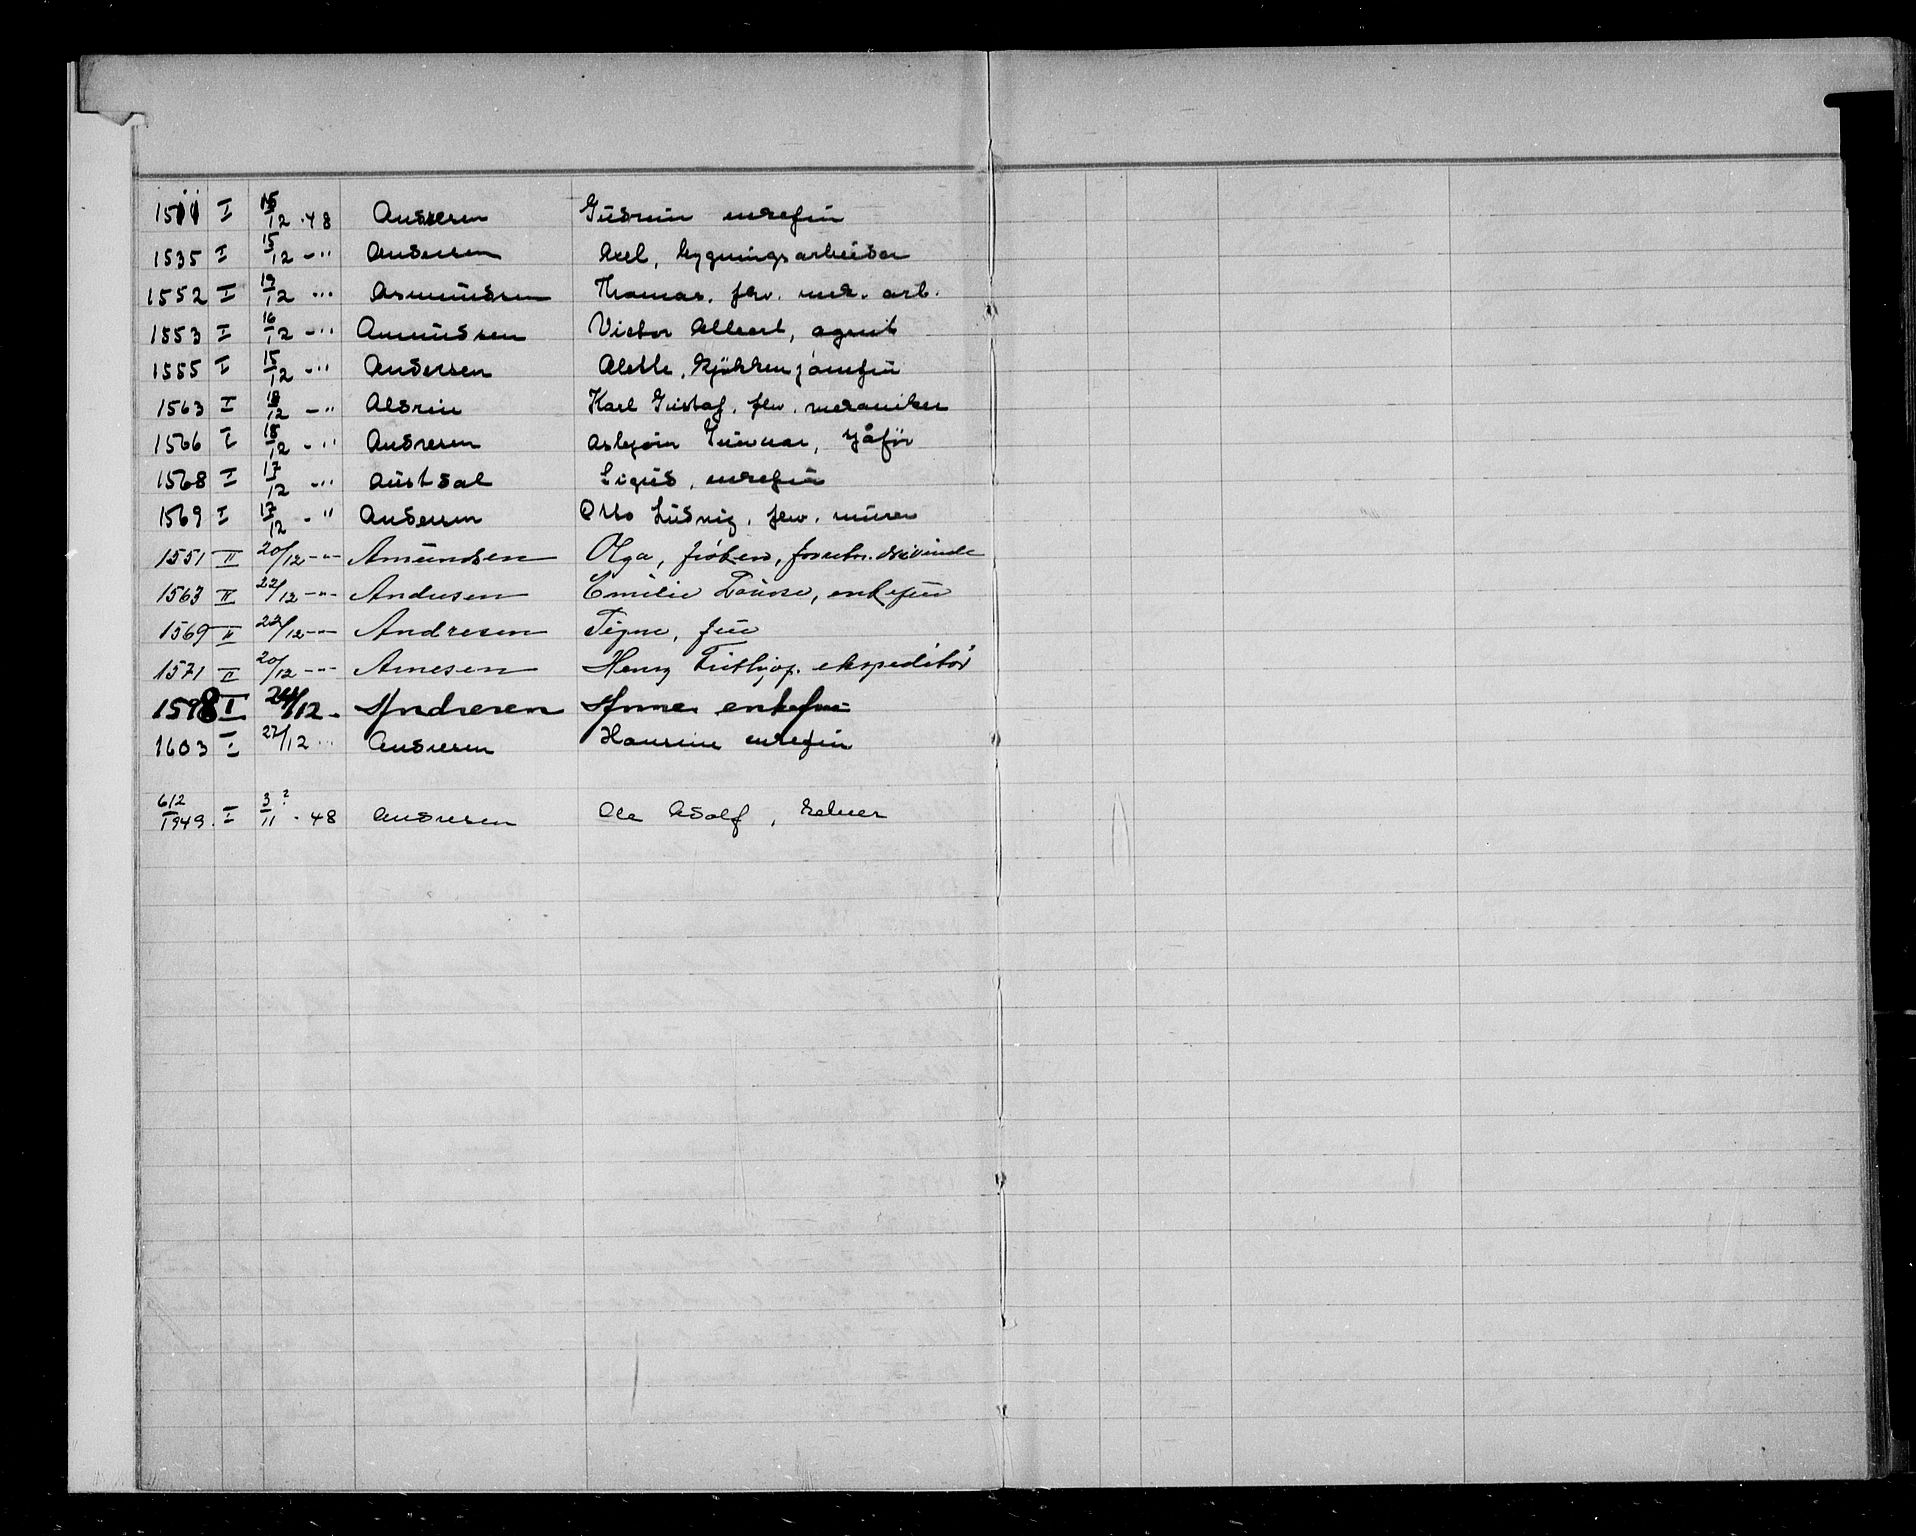 1511 I 15/12 · 48 Andresen Gudrun enkefru
1535 I 15/12 - " Andersen Axel, bygningsarbeider
1552 I 19/12 " Asmundsen Thomas, fhv. mek. arb.
1553 I 16/12 - " Amundsen Victor Albert, agent
1555 I 15/12 - " Andersen Alette, kjøkkenjomfru
1563 I 18/12 - " Alsrin Karl Gustaf, fhv. mekaniker
1566 I 18/12 - " Andresen Asbjørn Gunnar, sjåfør
1568 I 17/12 - " Austdal Sigrid, enkefru
1569 I 17/12 - " Andersen Otto Ludvig, fhv. murer
1551 II 20/12 - " - Amundsen Olga, frøken, forretn.drivende
1563 II 22/12 - " - Andresen Emilie Louise, enkefru
1569 II 22/12 - " - Andresen Signe, frue
1571 II 20/12 - " - Arnesen Henry Frithjof. ekspeditør
1598 I 24/12 - Andresen Anna enkefru
1603 I 27/12 " Andresen Hansine enkefru
612/1949. I 3/11 ? · 48 Andresen Ole Adolf, kelner